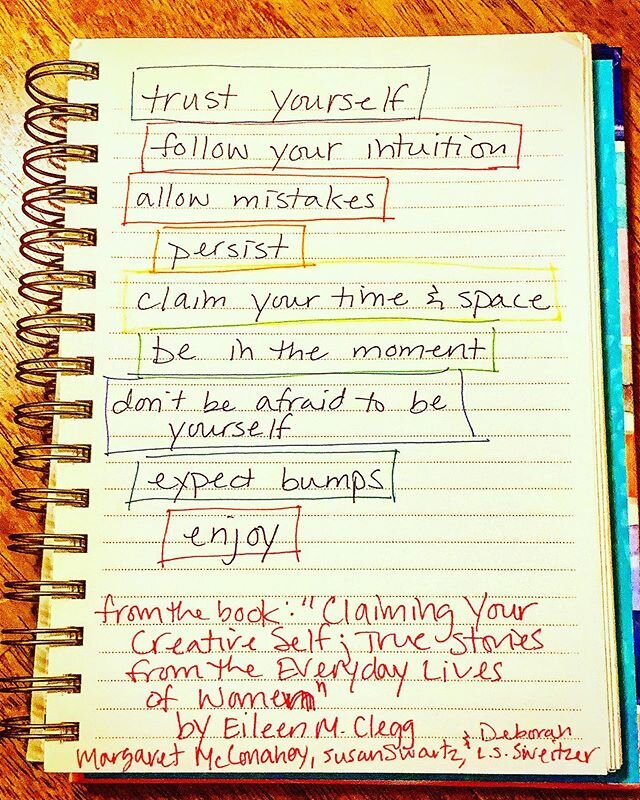 trust yourself
follow your intuition
allow mistakes
persist
claim your time & space
be in the moment
don't be afraid to be
yourself
expect bumps
enjoy
from the book: "Claiming Your
Creative Self; True Stories
from the Everyday Lives
of Women"
by Eileen M. Clegg
& Deborah
Margaret McConahoy, Susan Swartz, L.S. Sweitzer